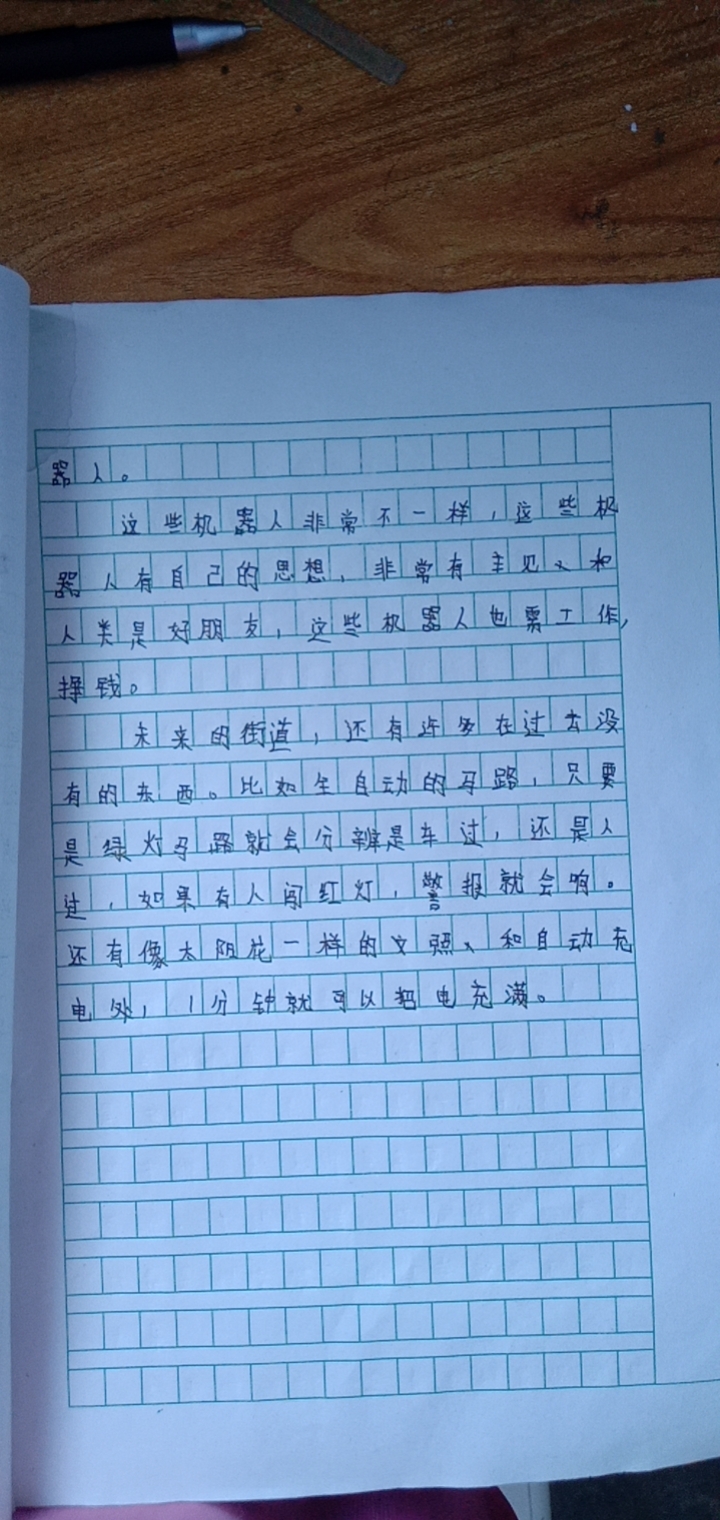 器人。
这些机器人非常不一样，这些机
器人有自己的思想，非常有主见、和
人类是好朋友，这些机器人也需工作，
挣钱。
未来的街道，还有许多在过去没
有的东西。比如全自动的马路，只要
是绿灯马路就会分辨是车过，还是人
过，如果有人闯红灯，警报就会响。
还有像太阳花一样的文照、和自动充
电处，1分钟就可以把电充满。